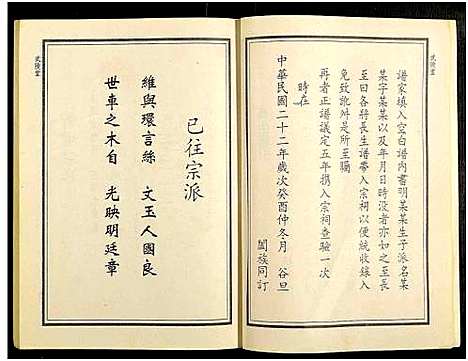 武陵堂
譜家填入空白譜内書明某某生子派名某
某字某某以及年月日時没者亦如之至長
至日各將長生譜帶入宗祠以便統收錄入
免致訛舛是所至囑
再者正譜議定五年携入宗祠查驗一次
時在
中華民國二十二年歲次癸酉仲冬月 谷旦
闔族同訂
已往宗派
維與環言絲 文玉人國良
世車之木自 光映明廷章
武陵堂